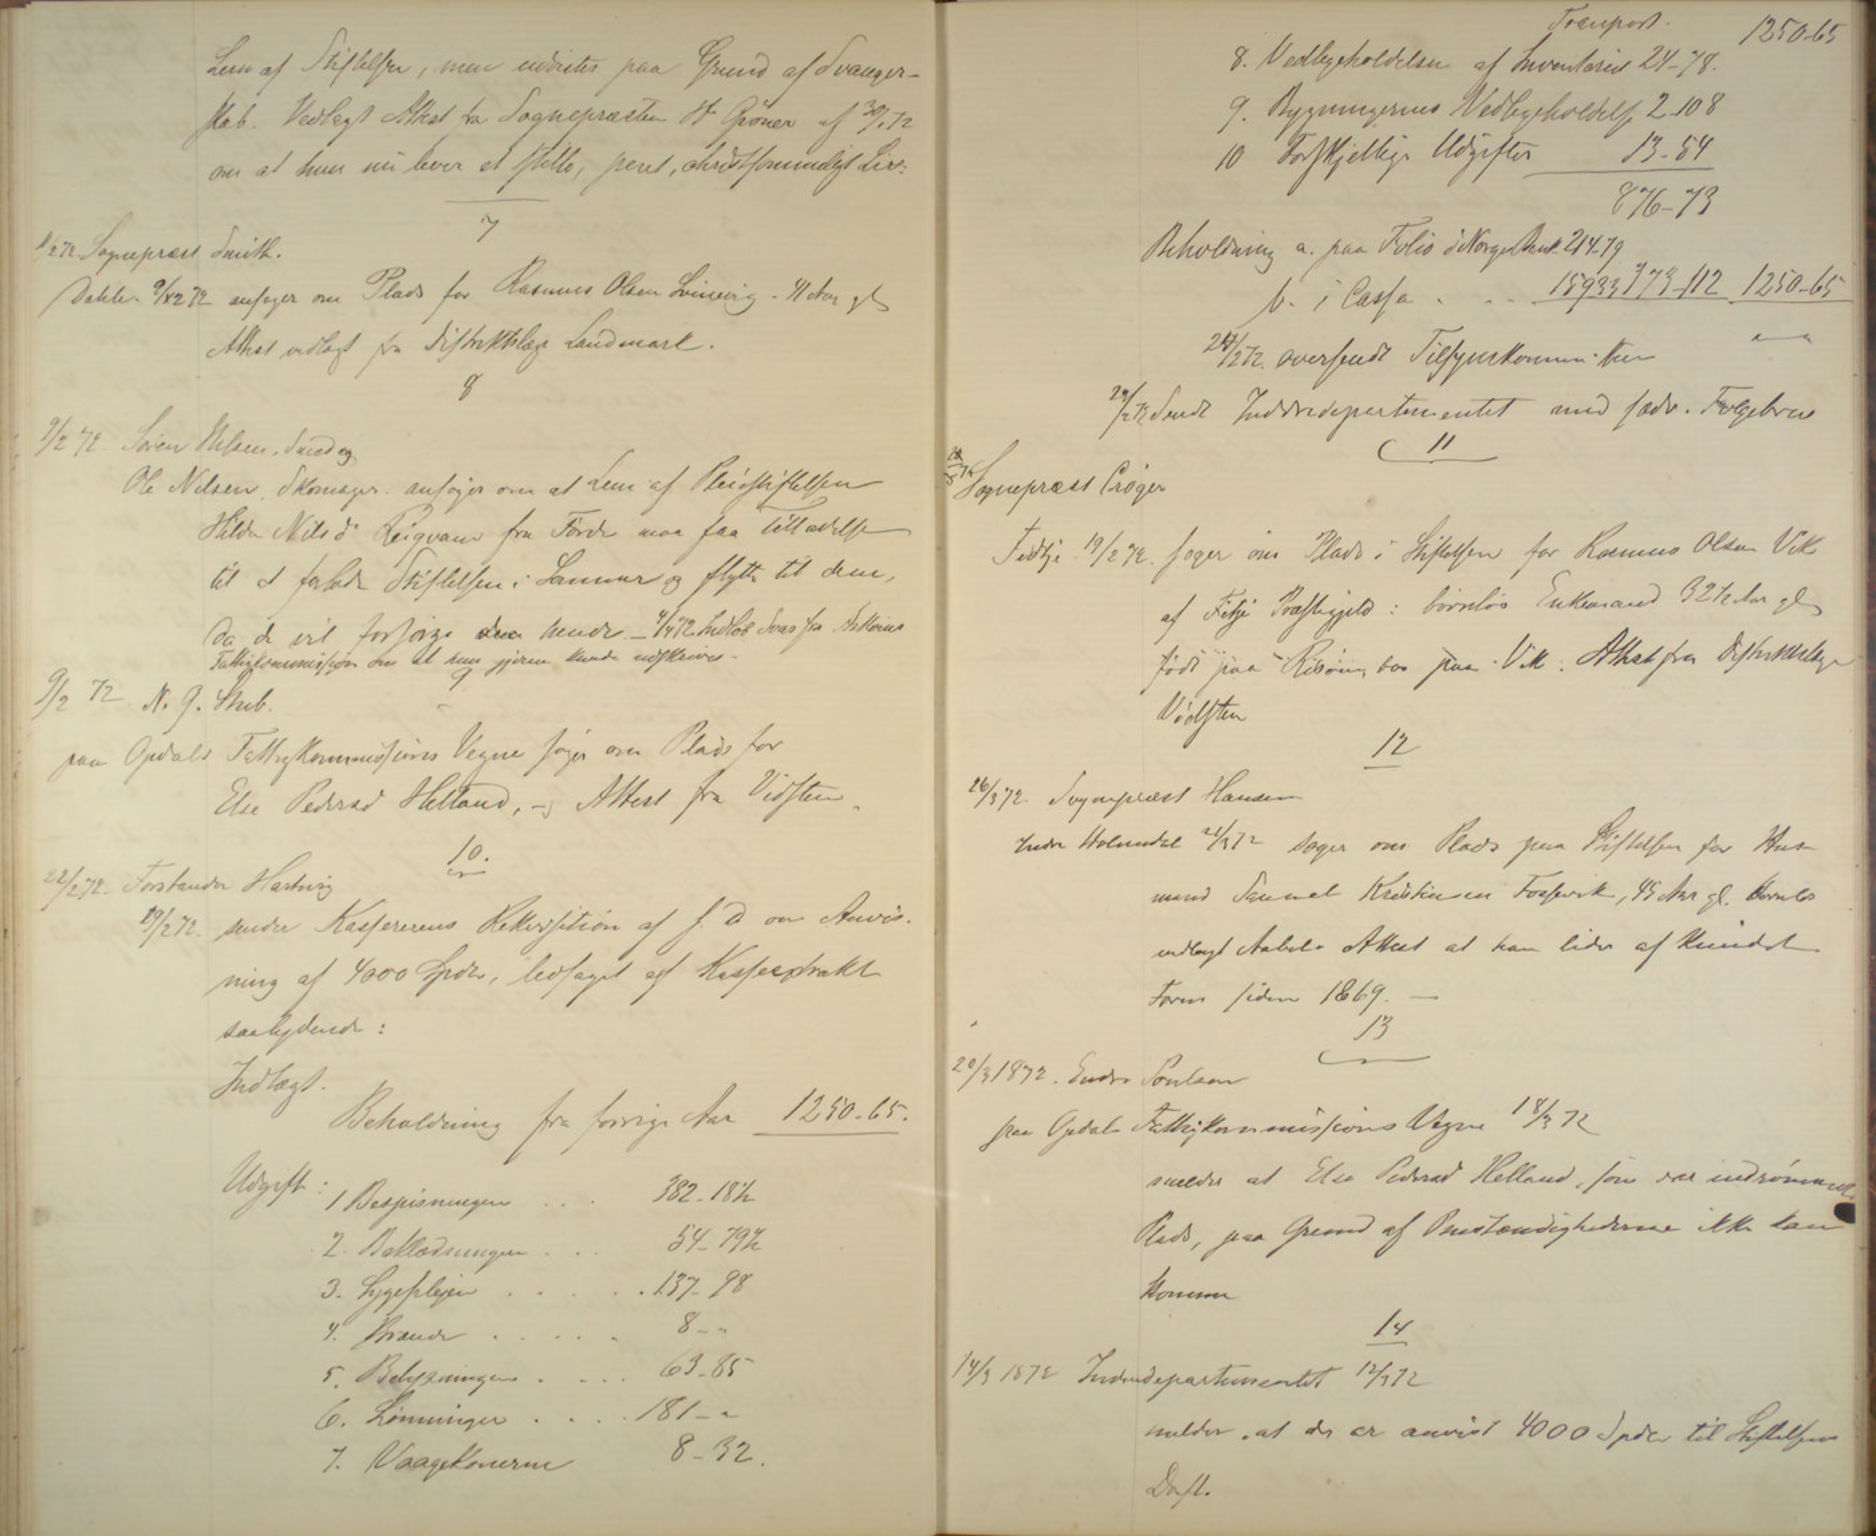 Lem af Stiftelsen, men udvistes paa Grund af Svanger-
skab. Vedlagt Attest fra Sognepræsten H Grøner af 30/1 72
om at hun nu lever et stille, pent, christsømmeligt Liv.
7
/2 72 Sognepræst Smith.
Dahle 9/2 72 ansøger om Plads for Rasmus Olsen - 41 Aar gl
Attest vedlagt fra Distriktslæge Landmark.
8
9/2 72 Søren Nilsen, Smed og
Ole Nilsen, Skomager. ansøger om at Lem af Pleiestiftelsen
Hilda Nilsd fra Førde maa faa Tilladelse
til at forlade Stiftelsen i Sommer og flytte til dem,
da de vil forsørge hende - 4/4 72 Indløb Svar fra Askvolds
Fattigkommission om at hun gjerne kunde udskrives -
9
9/2 72 N. J. Skub.
paa Opdals Fattigkommissions Vegne søger om Plads for
Else Pedersd Helland, - Attest fra Vidsteen
10.
22/2 72. Forstander Hartwig
19/2 72. sender Kassererens Rekvisition af s. D om Anvis-
ning af 4000 Spdlr, ledsaget af Kasseextrakt
saalydende:
Indtægt.
Beholdning fra forrige Aar 1250-65.
Udgift:
1 Bespisningen . . . 382-18½
2. Beklædningen . . . 54-79½
3. Sygeplejen . . . . . 137-98
4. Brænde . . . . . 8--
5. Belysningen . . . . 63-85
6. Lønninger . . . . 181--
7. Vaagekonerne 8-32.
Transport. 1250-65
8. Vedligeholdelsen af Inventariet 24-78.
9. Bygningernes Vedligeholdelse 2-108
10 Forskjellige Udgifter 13-54
876-73
Beholdning a. paa Folio i Norges Bank 214-79
b. i Cassa . . . 159 33 373-112 1250-65
24/2 72. oversendt Tilsynskommissionen
29/2 72 Sendt Indredepartementet med sædv. Følgebrev
11
Sognepræst Crøger
Fedtje 19/2 72. søger om Plads i Stiftelsen for Rasmus Olsen Vik
af Fitje Præstegjeld: barnløs Enkemand 32½ Aar gl
født paa Risøen, bor paa Vik. Attest fra Distriktslæge
Vidsteen
12
26/3 72. Sognepræst Hansen
Indre Holmedal 21/3 72 søger om Plads paa Stiftelsen for Hus-
mand Samuel Kristensen Fossevik, 45 Aar gl. Barnløs
vedlagt Attest at han lider af
Form siden 1869. —
13
20/3 1872. Endre Poulsen
paa Opdals Fattigkommissions Vegne 18/3 72
melder at Else Pedersd Helland, som var indrømmet
Plads, paa Grund af Omstændighederne ikke kan
komme
14
14/3 1872 Indredepartementet 12/3 72
melder, at der er anvist 4000 Spdlr til Stiftelsens
Drift.